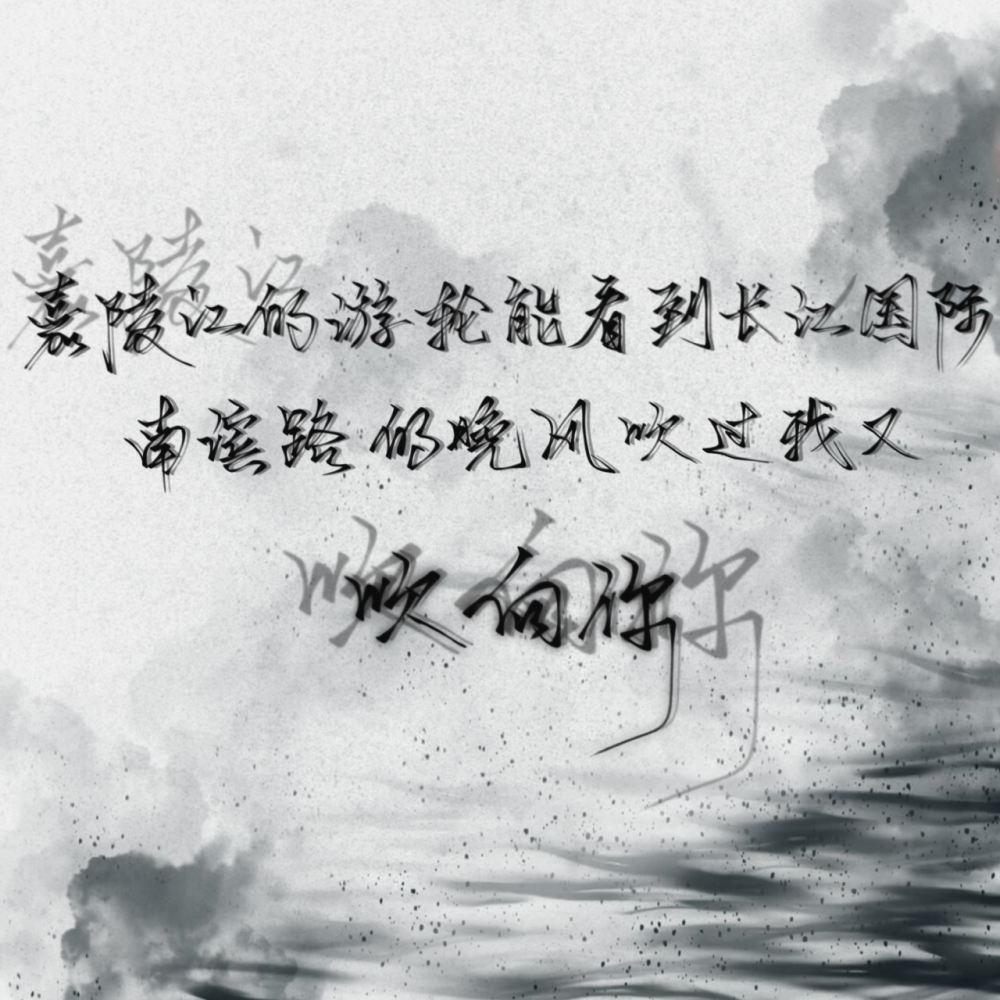 嘉陵江
嘉陵江的游轮能看到长江国际
南滨路的晚风吹过我又
吹向你
吹向你